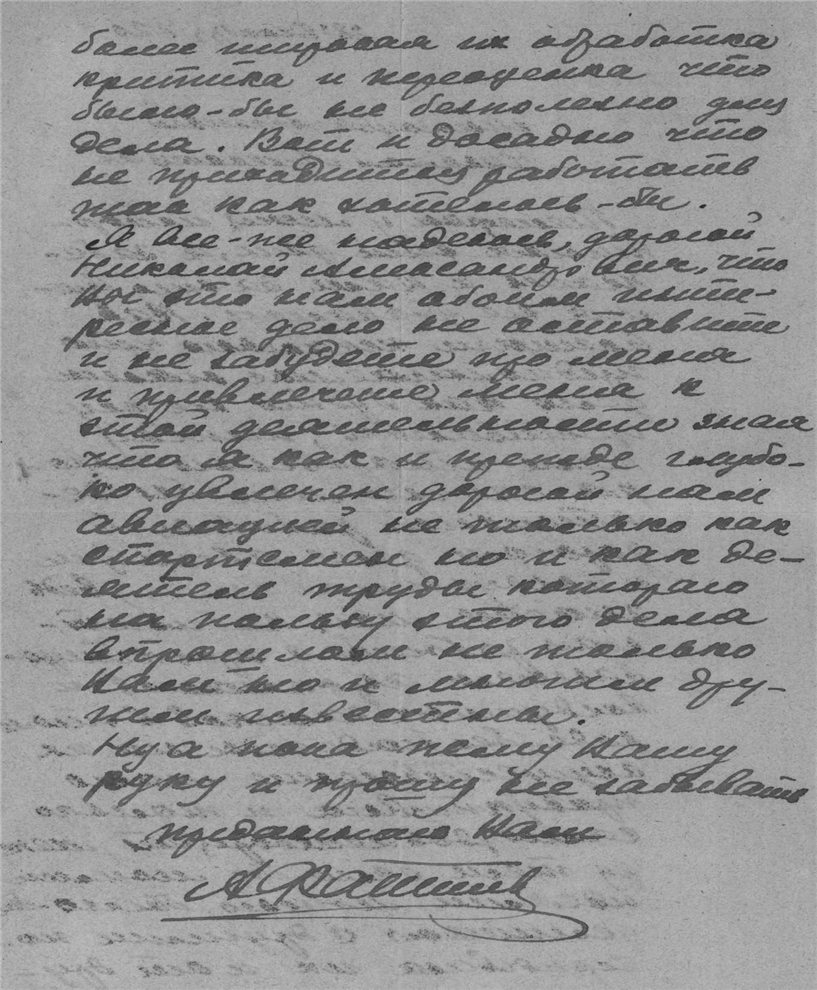 более широкая их обработка
критика и переоценка что
было-бы не безполезно для
дела. Вот и досадно что
не приходится работать
так как хотелось-бы.
Я все-же надеюсь, дорогой
Николай Александрович, что
Вы это нам обоим инте-
ресное дело не оставите
и не забудете про меня
и привлечете меня к
этой деятельности зная
что я как и прежде глубо-
ко увлечен дорогой нам
авиацией не только как
спортсмен но и как де-
ятель труды котораго
на пользу этого дела
в прошлом не только
Вам но и многим дру-
гим известны.
Ну а пока жму Вашу
руку и прошу не забывать
преданнаго Вам
А